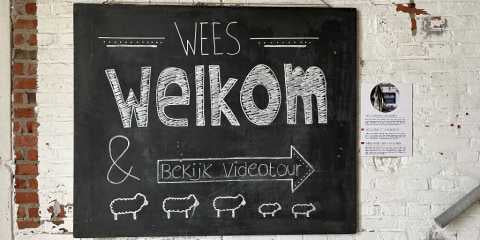 WEES
WELKOM
&
Bekijk Videotour